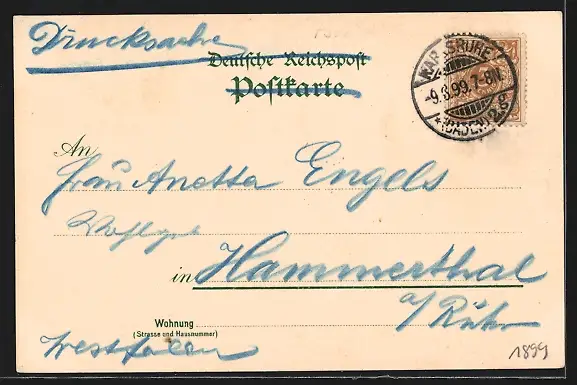 Drucksache
Deutsche Reichspost
Postkarte
KARLSRUHE
-9.8.99.7-8N.
* (BADEN) 2g *
An
Frau Anetta Engels
Wohlgeb
in Hammerthal
a/Ruhr
Wohnung
(Strasse und Hausnummer)
Westfalen
1899